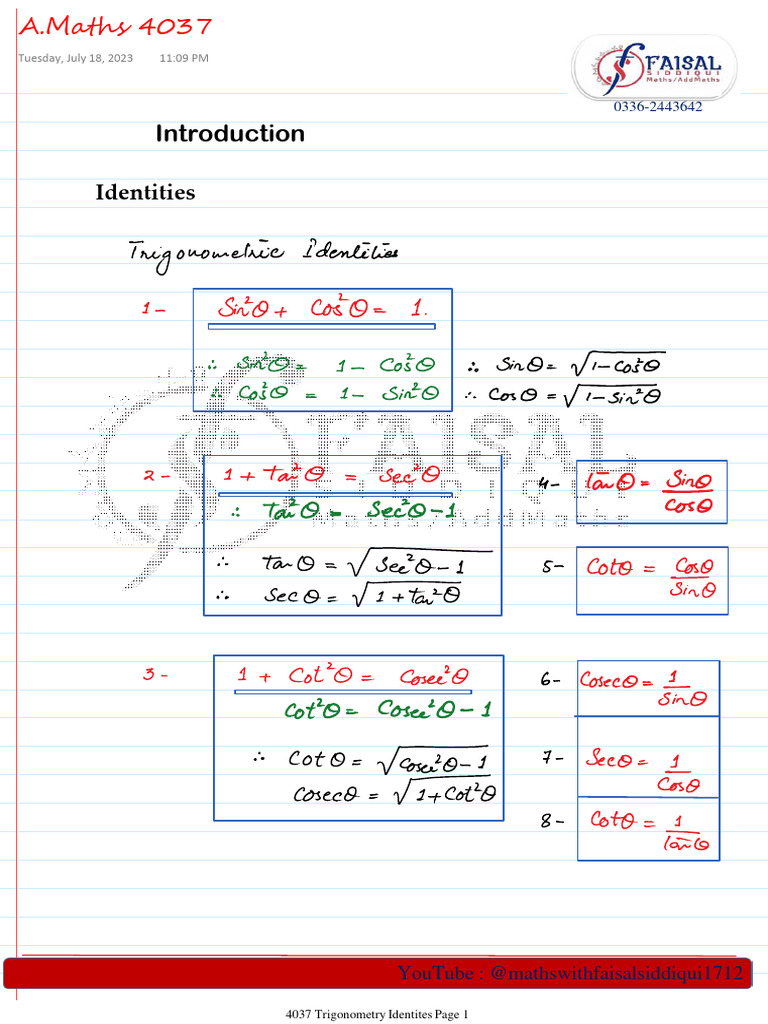 A.Maths 4037
Tuesday, July 18, 2023 11:09 PM
FAISAL
SIDDIQUI
Maths/AddMaths
0336-2443642
Introduction
Identities
Trigonometric Identities
1- Sin²θ + Cos²θ = 1.
∴ Sin²θ = 1 - Cos²θ ∴ Sinθ = √(1-Cos²θ)
∴ Cos²θ = 1- Sin²θ ∴ Cosθ = √(1-Sin²θ)
FAISAL
SIDDIQUI
Maths/AddMaths
2- 1 + tan²θ = Sec²θ
∴ tan²θ = Sec²θ-1
∴ tanθ = √(Sec²θ-1)
∴ Secθ = √(1+tan²θ)
4- tanθ = Sinθ/Cosθ
5- Cotθ = Cosθ/Sinθ
3- 1 + Cot²θ = Cosec²θ
Cot²θ = Cosec²θ-1
∴ Cotθ = √(Cosec²θ-1)
Cosecθ = √(1+Cot²θ)
6- Cosecθ = 1/Sinθ
7- Secθ = 1/Cosθ
8- Cotθ = 1/tanθ
YouTube : @mathswithfaisalsiddiqui1712
4037 Trigonometry Identites Page 1